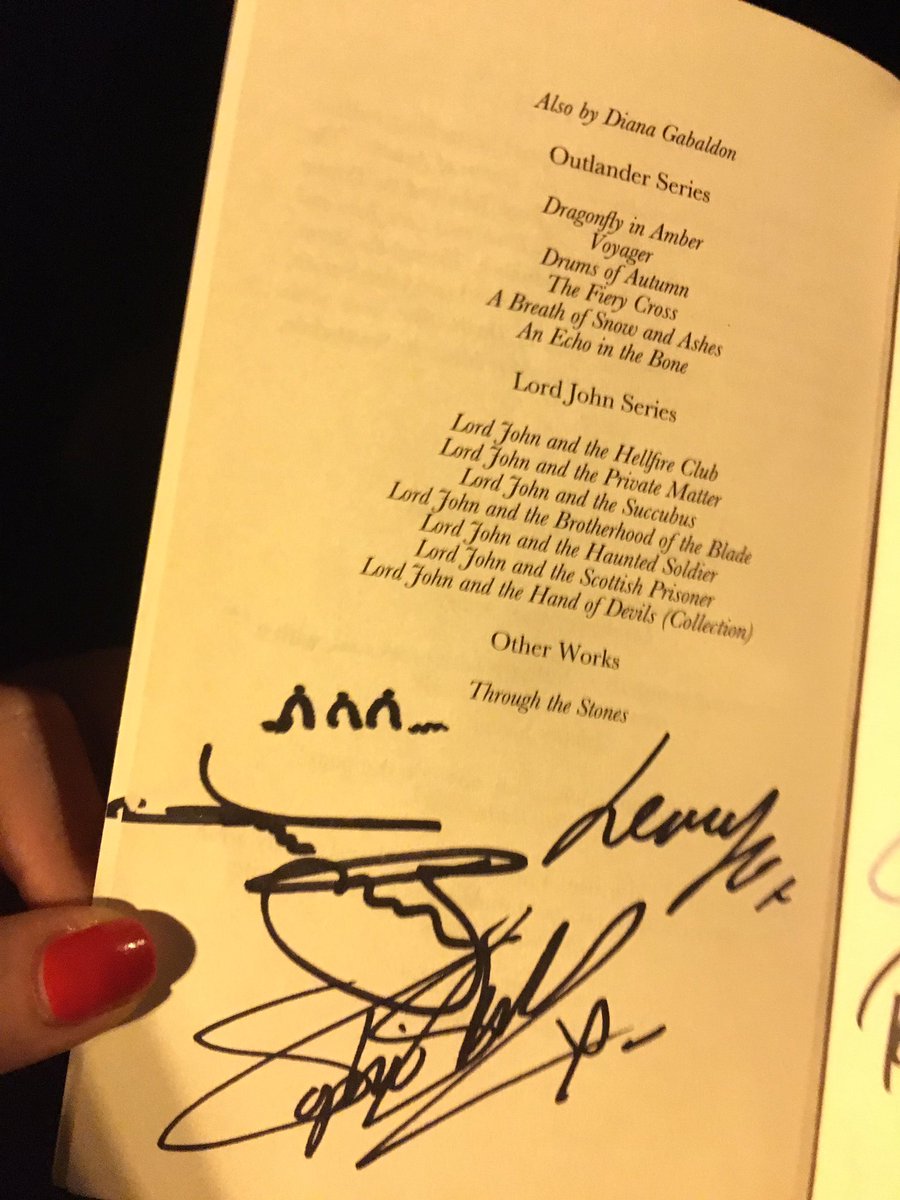 Also by Diana Gabaldon
Outlander Series
Dragonfly in Amber
Voyager
Drums of Autumn
The Fiery Cross
A Breath of Snow and Ashes
An Echo in the Bone
Lord John Series
Lord John and the Hellfire Club
Lord John and the Private Matter
Lord John and the Succubus
Lord John and the Brotherhood of the Blade
Lord John and the Haunted Soldier
Lord John and the Scottish Prisoner
Lord John and the Hand of Devils (Collection)
Other Works
Through the Stones